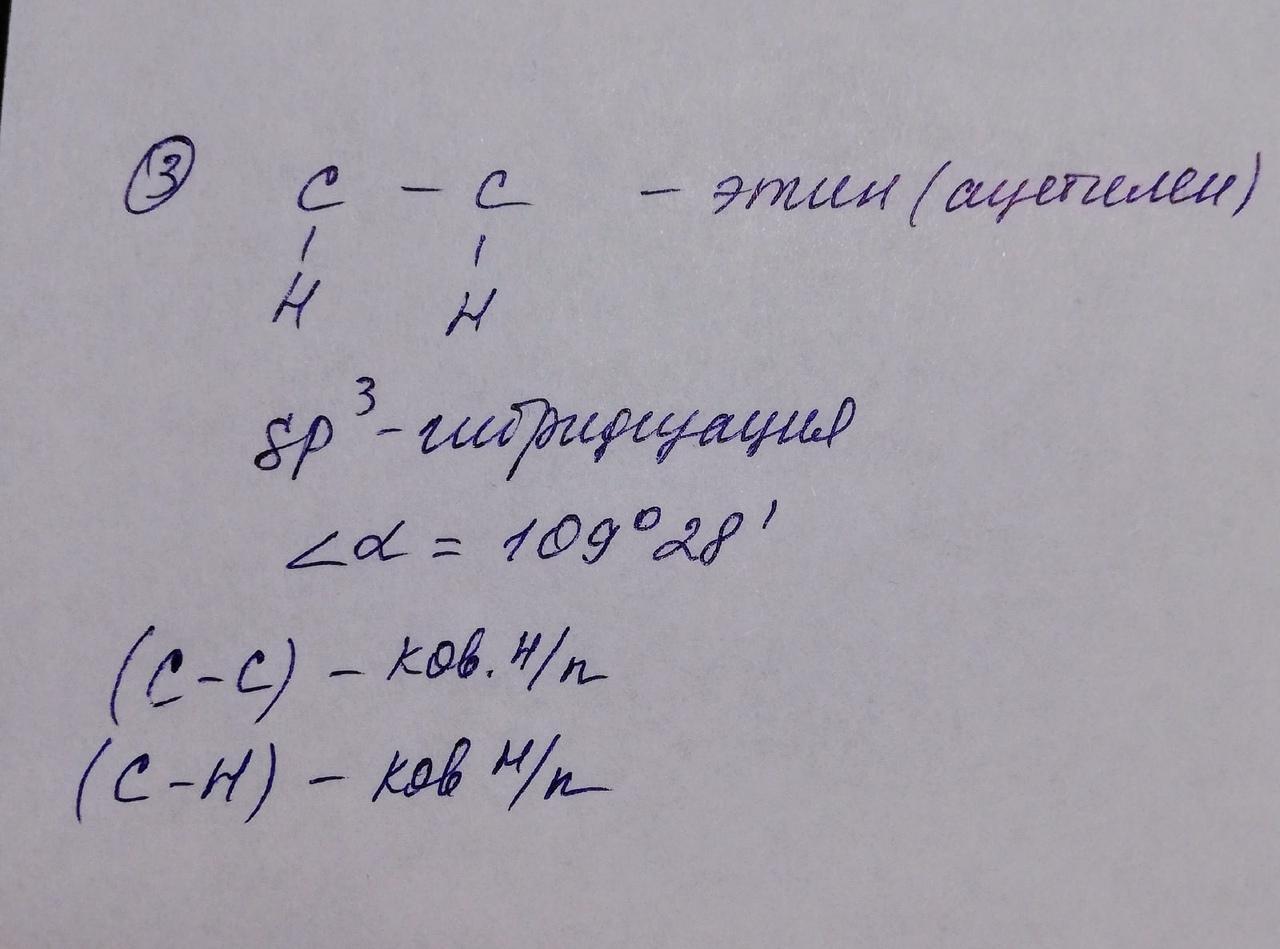 ③ C – C – этин (ацетилен)
H H
sp³-гибридизация
∠α = 109°28'
(C–C) – ков. н/п
(C–H) – ков н/п